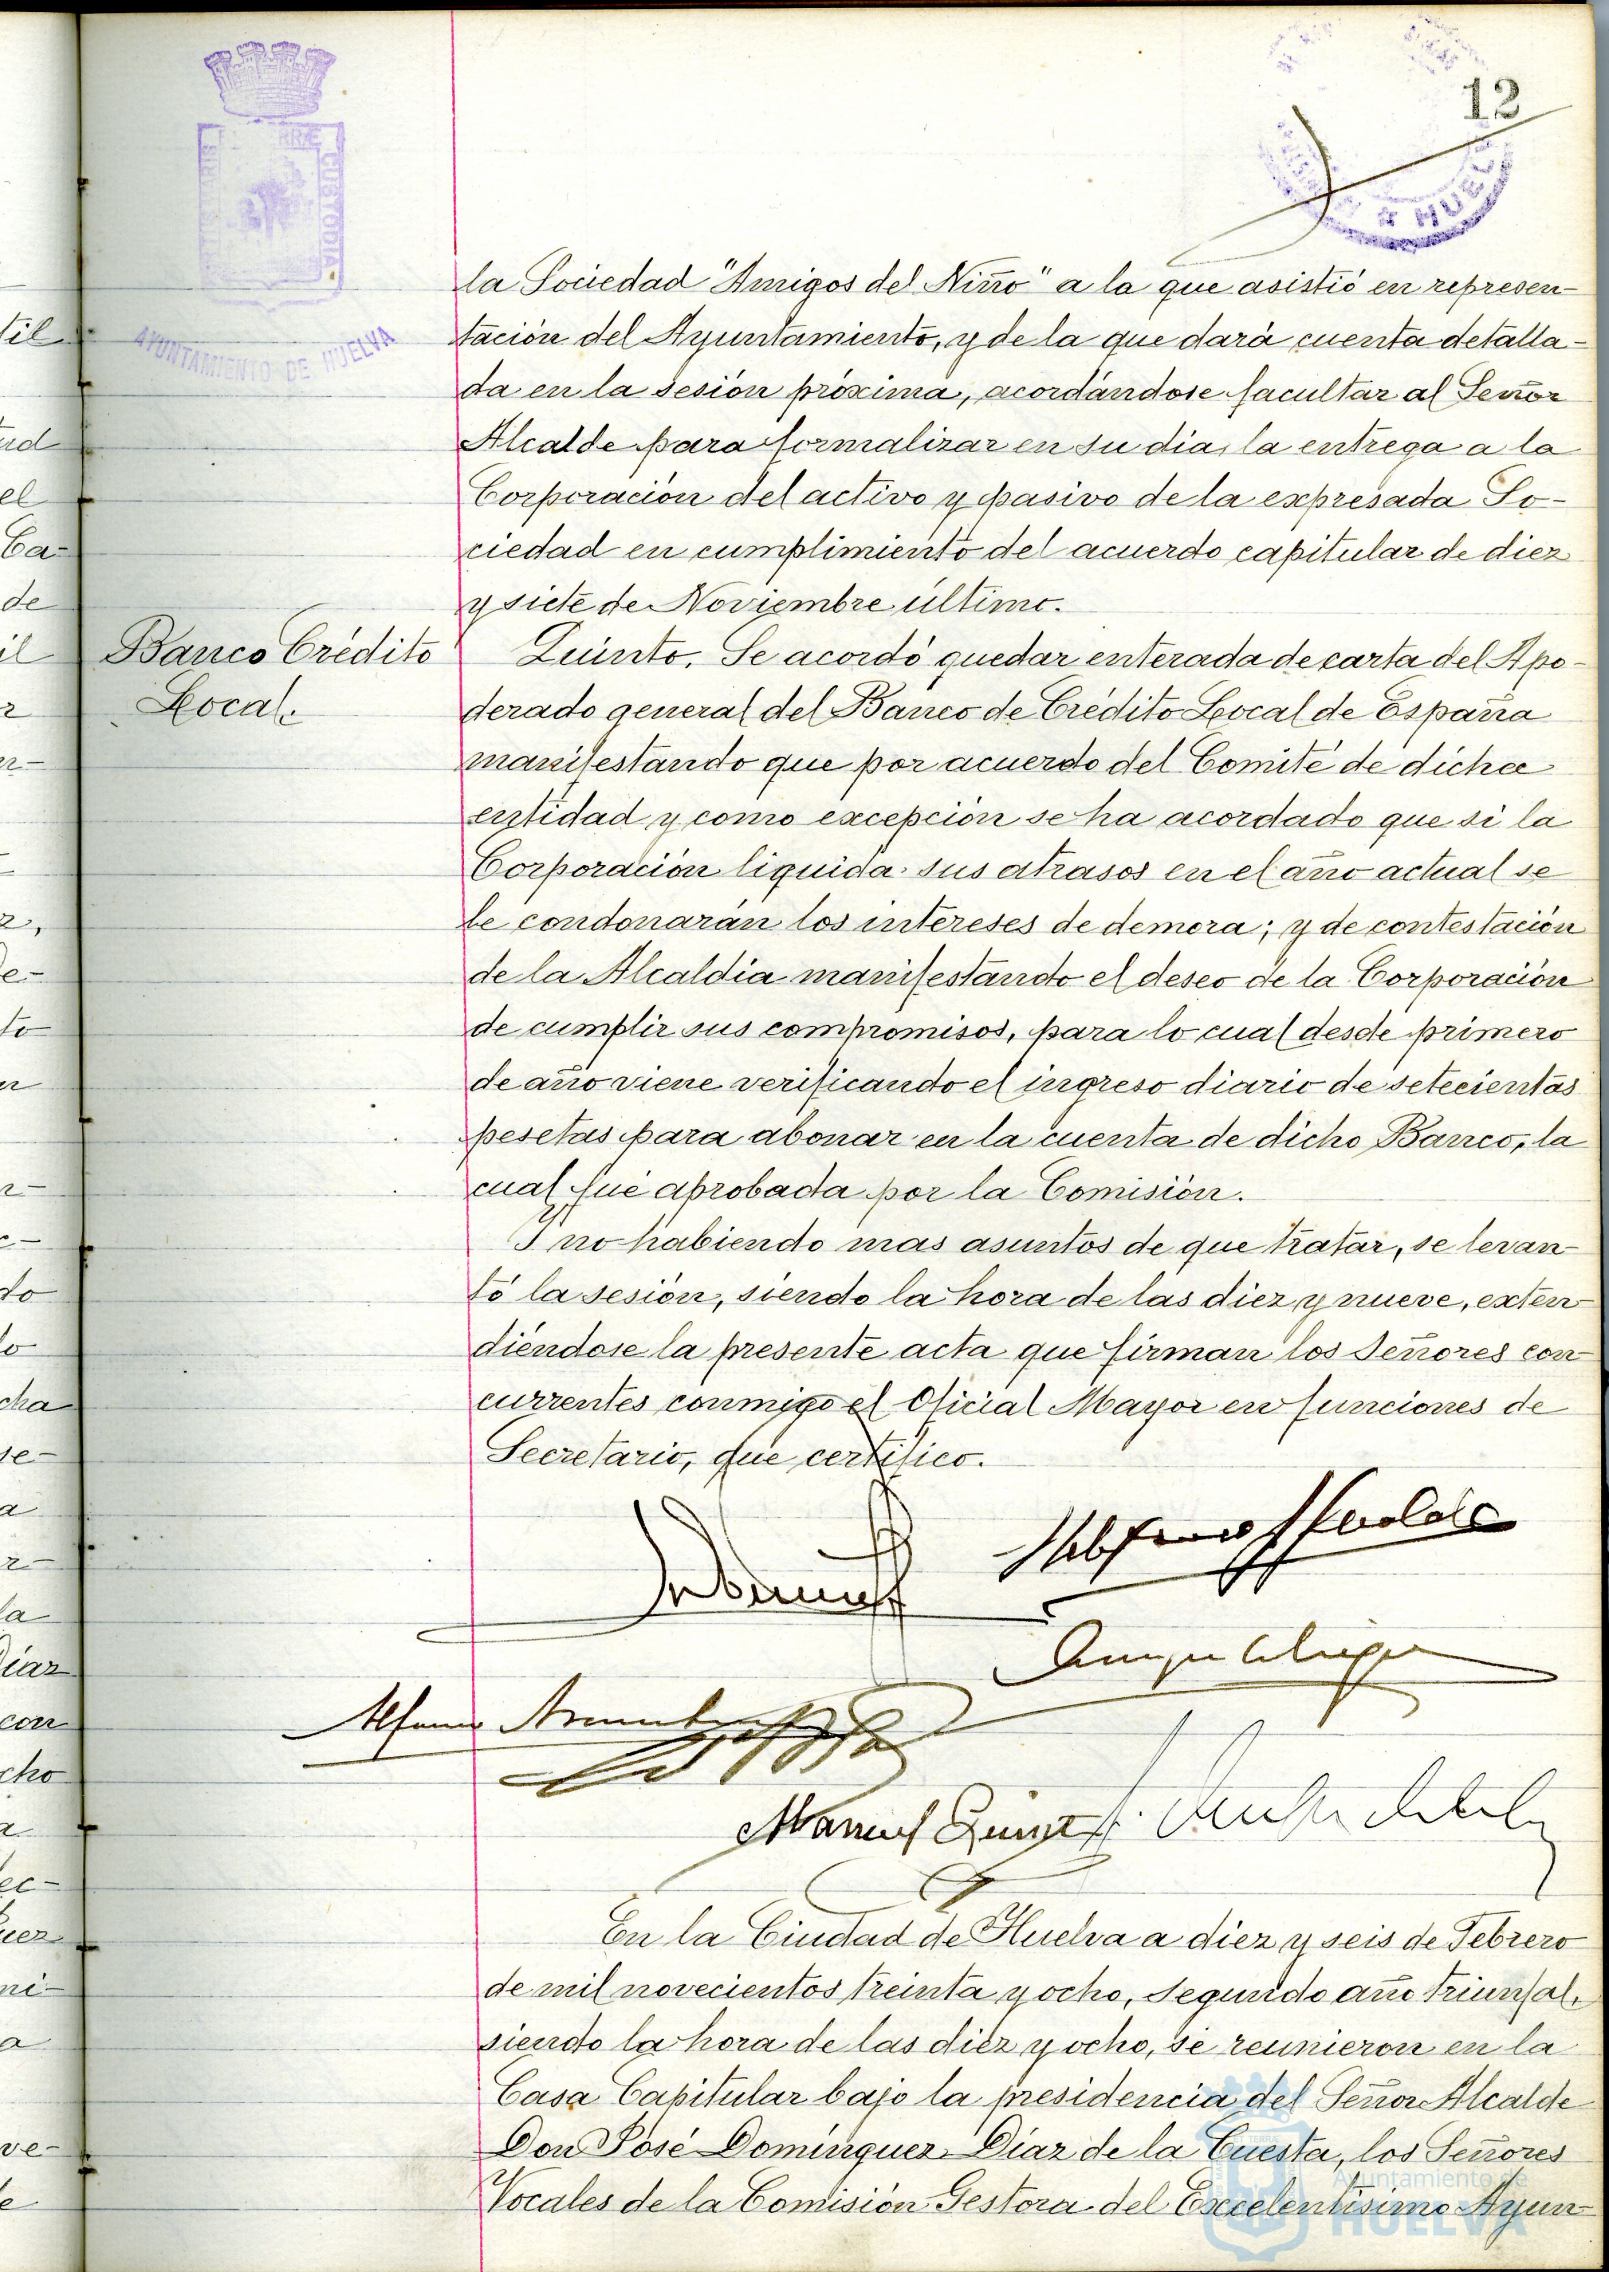 12
AYUNTAMIENTO DE HUELVA
CUSTODIA
HUEL
la Sociedad "Amigos del Niño" a la que asistió en represen-
tación del Ayuntamiento, y de la que dará cuenta detalla-
da en la sesión próxima, acordándose facultar al Señor
Alcalde para formalizar en su dia, la entrega a la
Corporación del activo y pasivo de la expresada So-
ciedad en cumplimiento del acuerdo capitular de diez
y siete de Noviembre último.
Banco Crédito
Local.
Quinto. Se acordó quedar enterada de carta del Apo-
derado general del Banco de Crédito Local de España
manifestando que por acuerdo del Comité de dicha
entidad y como excepción se ha acordado que si la
Corporación liquida sus atrasos en el año actual se
le condonarán los intereses de demora; y de contestación
de la Alcaldía manifestando el deseo de la Corporación
de cumplir sus compromisos, para lo cual desde primero
de año viene verificando el ingreso diario de setecientas
pesetas para abonar en la cuenta de dicho Banco, la
cual fué aprobada por la Comisión.
Y no habiendo mas asuntos de que tratar, se levan-
tó la sesión, siendo la hora de las diez y nueve, exten-
diéndose la presente acta que firman los Señores con-
currentes conmigo el Oficial Mayor en funciones de
Secretario, que certifico.
Manuel
En la Ciudad de Huelva a diez y seis de Febrero
de mil novecientos treinta y ocho, segundo año triunfal,
siendo la hora de las diez y ocho, se reunieron en la
Casa Capitular bajo la presidencia del Señor Alcalde
Don José Domínguez Díaz de la Cuesta, los Señores
Vocales de la Comisión Gestora del Excelentísimo Ayun-
Ayuntamiento de
HUELVA